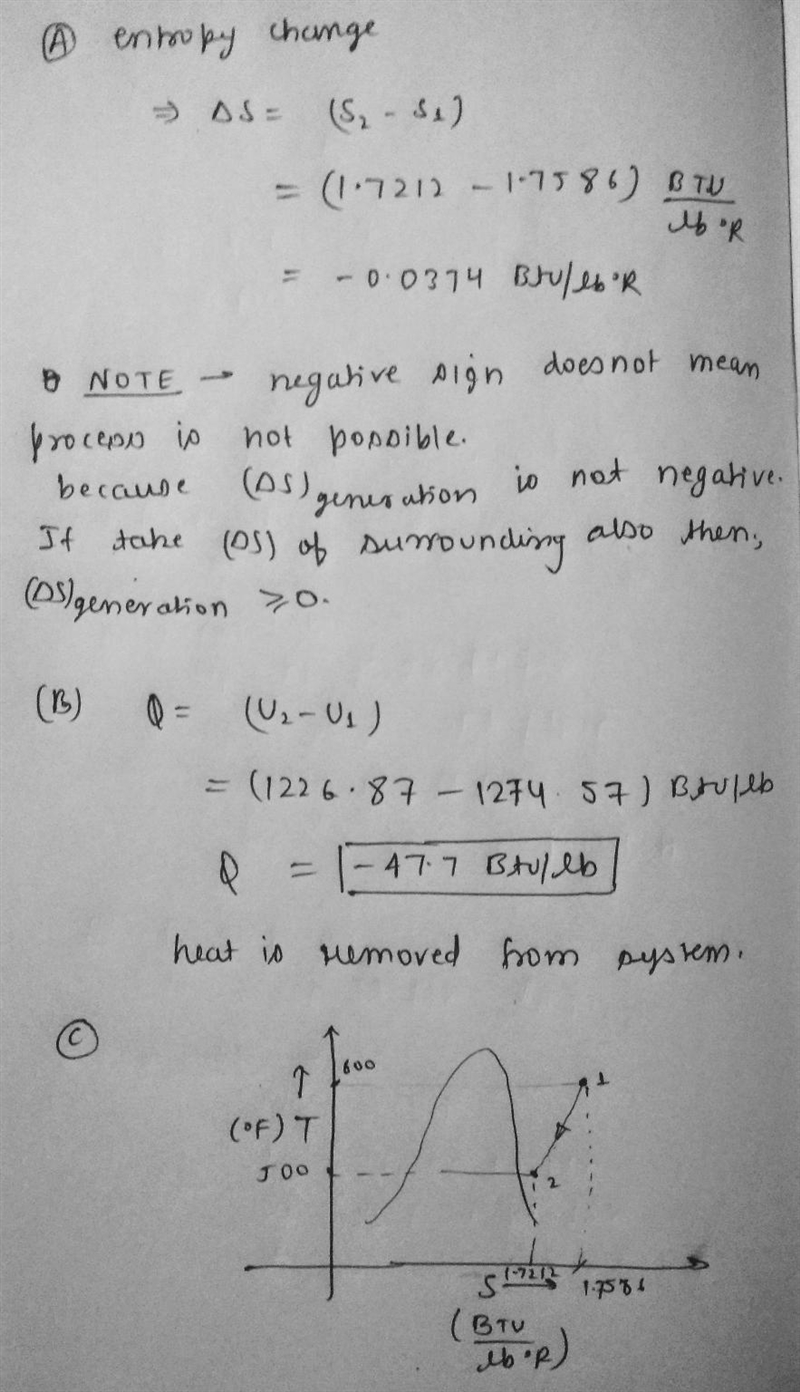 (A) entropy change
⇒ ΔS = (S₂ - S₁)
= (1.7212 - 1.7586) BTU/lb°R
= -0.0374 Btu/lb°R
NOTE → negative sign doesnot mean
process is not possible.
because (ΔS)generation is not negative.
If take (ΔS) of surrounding also then,
(ΔS)generation ≥ 0.
(B) Q = (U₂ - U₁)
= (1226.87 - 1274.57) Btu/lb
Q = -47.7 Btu/lb
heat is removed from system.
(C)
↑ 600 1
(°F) T
500 2
S → 1.7212 1.7586
(BTU/lb°R)